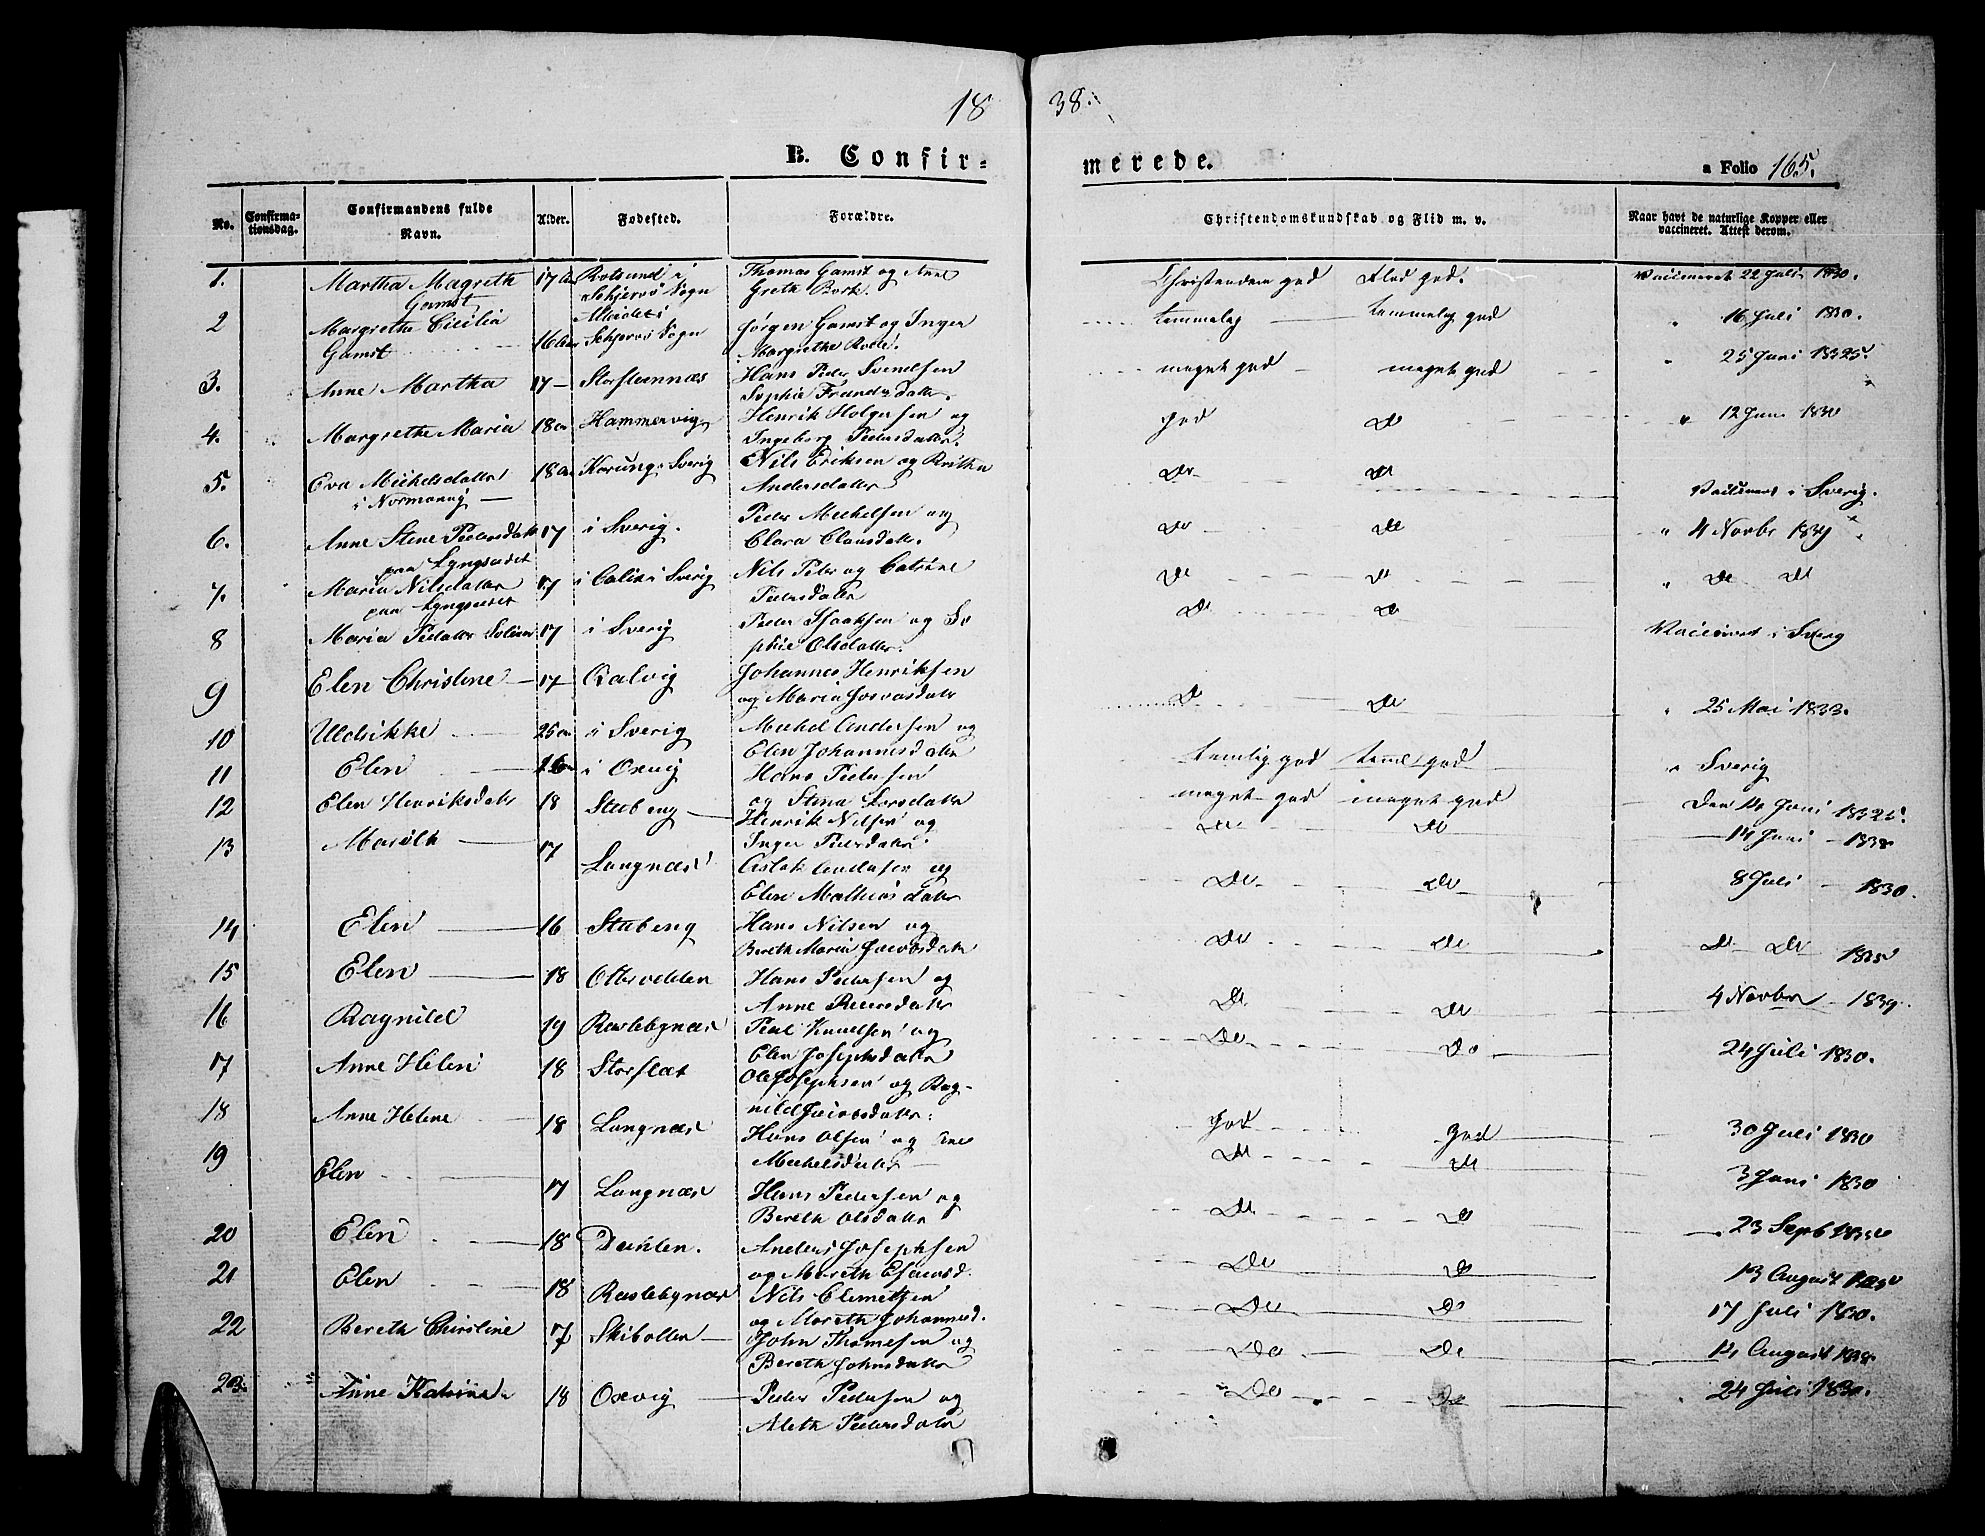 18 38.
B. Confirmerede. a Folio 165.
No. Confirmationsdag. Confirmandens fulde Navn. Alder. Fødested. Forældre. Christendomskundskab og Flid m. v. Naar havt de naturlige Kopper eller vaccineret. Attest derom.
1. Martha Magreth Gamst 17 Rotsund i Schjervø Sogn Thomas Gamst og Anne Greth Christendom god Flid god. 22 Juli 1830.
2 Margretha Cicilia Gamst 16 Schjervø Sogn Jørgen Gamst og Inger Margrethe temmelig temmelig god " 16 Juli 1830.
3. Anne Martha 17 Storsteinnæs Hans Peder Svendsen Sophie meget god meget god " 25 Juni
4. Margrethe Maria 18 Hammervig Henrik Holgersen og Ingeborg Pedersdatter. god Do " 12 Juni 1830
5. Eva Michelsdatter i 18 Karung i Sverig Nils Eriksen og Andersdatter Do Do i Sverig.
6. Anne Stine Pedersdatter paa Lyngseidet 17 i Sverig. Peder Michelsen og Clara Clausdatter Do Do " 4 Novbr
7. Maria Nilsdatter paa Lyngseidet 17 i Calix i Sverig Nils Peter og Catrine Pedersdatter Do Do " Do Do
8 Maria 17 i Sverig Peder Isaaksen og Sophie Olsdatter. Do Do i Sverig
9 Elen Christine 17 Qvalvig Johannes Henriksen og Maria Do Do " 25 Mai 1833.
10 Uldrikke 25 i Sverig Michel Andersen og Elen Johannesdatter temlig god god " Sverig
11 Elen 16 i Oxvig Hans Pedersen og Stina Larsdatter meget god meget god Den Juni
12 Elen Henriksdatter 18 Stubeng Henrik Nilsen og Inger Pedersdatter. Do Do 14 Juni
13 Marith 17 Langnæs Aslak Andersen og Elen Mathiasdatter Do Do 8 Juli 1830.
14 Elen 16 Stubeng Hans Nilsen og Bereth Maria Jacobsdatter Do Do Do Do
15 Elen 18 Hans Pedersen og Anne Pedersdatter Do Do 4 Novbr
16 Ragnild 19 Rastebynæs Peder Knudsen og Elen Josephsdatter Do Do 24 Juli 1830.
17 Anne Helene 18 Storslæt Ole Josephsen og Ragnild Jacobsdatter. god god 30 Juli 1830
18 Anne Helene 18 Langnæs Hans Olsen og Michelsdatter Do Do 3 Juni 1830
19 Elen 17 Langnæs Hans Pedersen og Bereth Olsdatter Do Do 23 Septb
20 Elen 18 Dahlen. Anders Josephsen og Mereth Do Do 13 August
21 Elen 18 Rastebynæs Nils Clemetsen og Mareth Johannesd. Do Do 17 Juli 1830.
22 Bereth Christine 17 Skibotten John Thomesen og Bereth Johnsdatter Do Do August
23. Anne Katrina 18 Oxvig Peder Pedersen og Aleth Pedersdatter Do Do 24 Juli 1830.